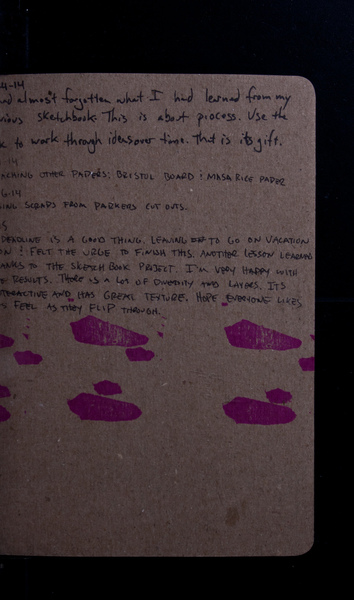 4-14
ad almost forgotten what I had learned from my
vious sketchbook. This is about process. Use the
k to work through ideas over time. That is its gift.
-14
ACHING OTHER PAPERS: BRISTOL BOARD : MASA RICE PAPER
6-14
ING SCRAPS FROM PARKERS CUT OUTS.
5
DEADLINE IS A GOOD THING. LEAVING TO GO ON VACATION
ON : FELT THE URGE TO FINISH THIS. ANOTHER LESSON LEARNED
ANKS TO THE SKETCH BOOK PROJECT. I'M VERY HAPPY WITH
E RESULTS. THERE IS A LOT OF DIVERSITY AND LAYERS. ITS
TERACTIVE AND HAS GREAT TEXTURE. HOPE EVERYONE LIKES
S FEEL AS THEY FLIP THROUGH.